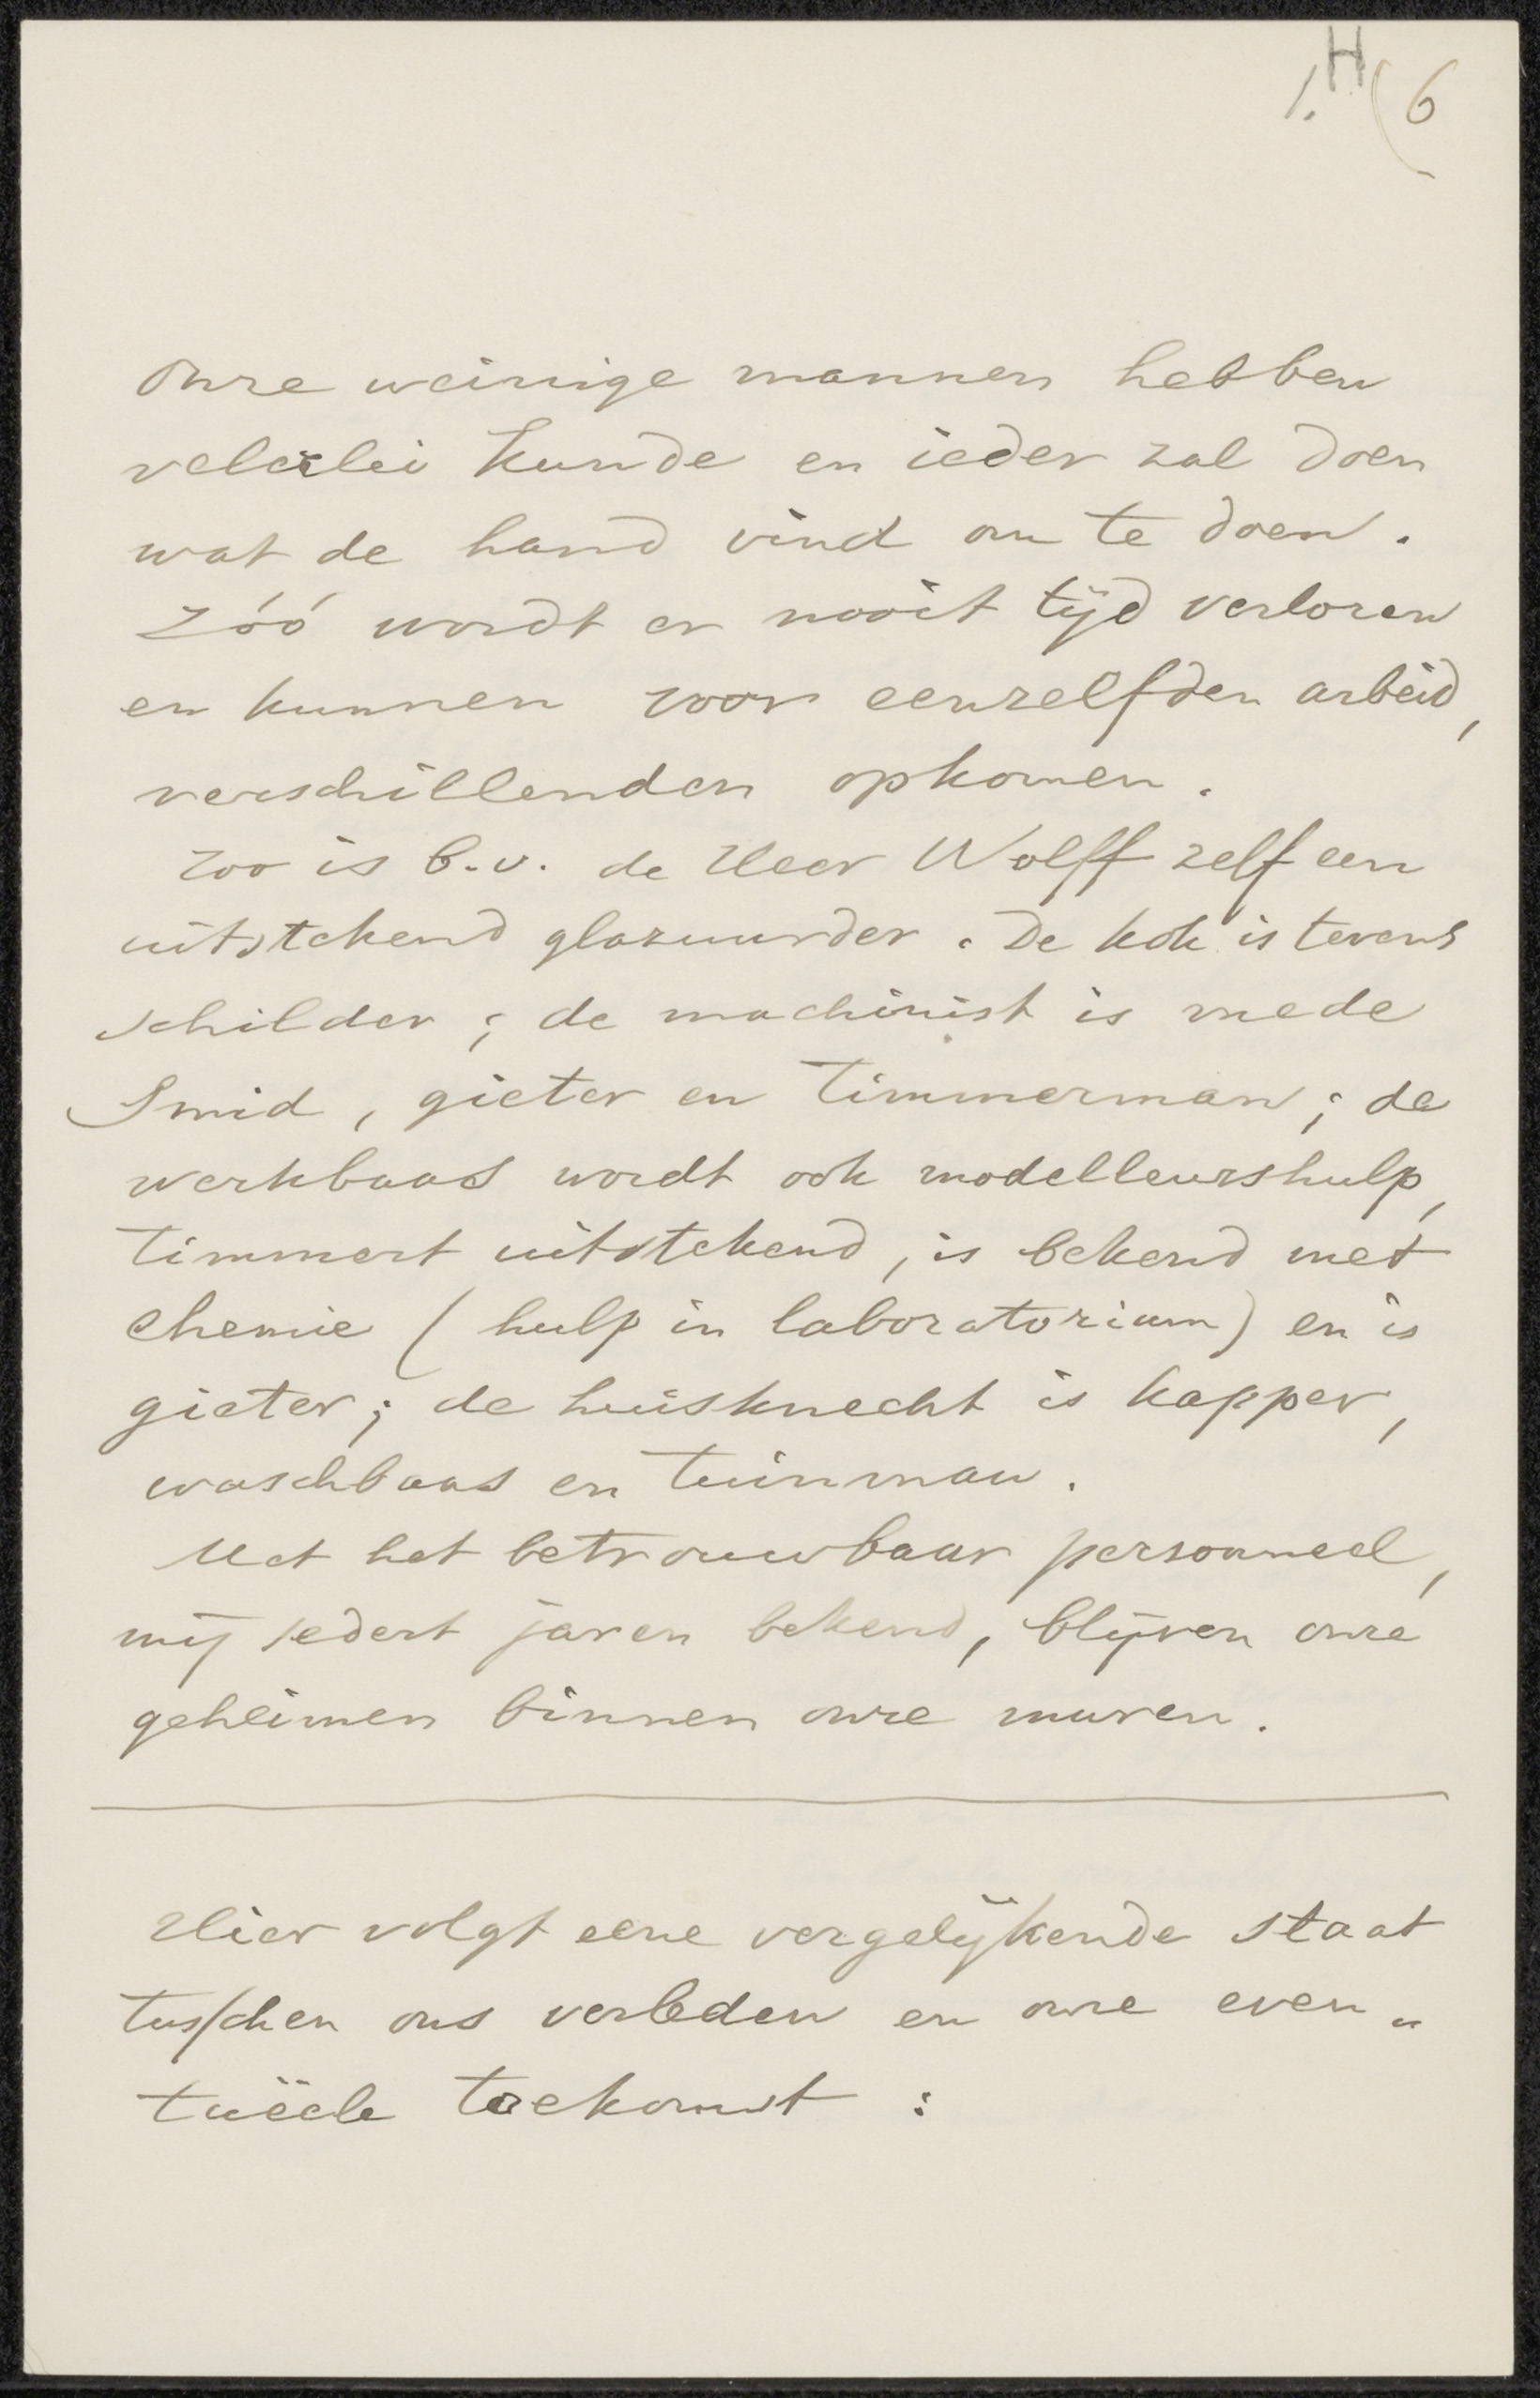 1. H (6
Onze weinige mannen hebben
velerlei kunde en ieder zal doen
wat de hand vind om te doen.
Zóó wordt er nooit tijd verloren
en kunnen voor eenzelfden arbeid,
verschillenden opkomen.
Zoo is b.v. de Heer Wolff zelf een
uitstekend glazuurder. De kok is tevens
schilder; de machinist is mede
Smid, gieter en timmerman; de
werkbaas wordt ook modelleurshulp,
timmert uitstekend, is bekend met
chemie (hulp in laboratorium) en is
gieter; de huisknecht is kapper,
waschbaas en tuinman.
Met het betrouwbaar personneel,
mij sedert jaren bekend, blijven onze
geheimen binnen onze muren.
Hier volgt eene vergelijkende staat
tusschen ons verleden en onze even„
tuëele toekomst :